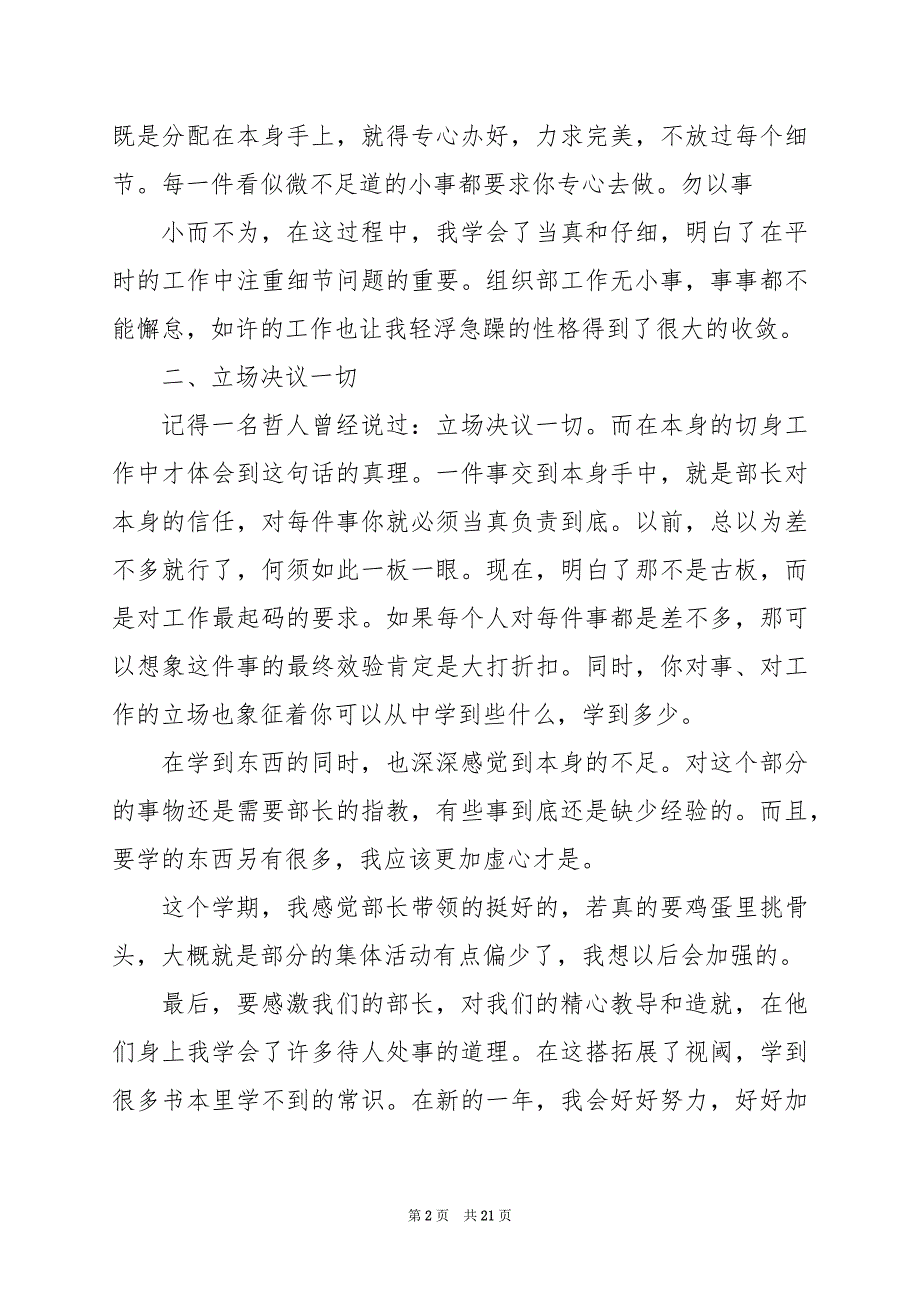 既是分配在本身手上，就得专心办好，力求完美，不放过每个细
节。每一件看似微不足道的小事都要求你专心去做。勿以事
小而不为，在这过程中，我学会了当真和仔细，明白了在平
时的工作中注重细节问题的重要。组织部工作无小事，事事都不
能懈怠，如许的工作也让我轻浮急躁的性格得到了很大的收敛。
二、立场决议一切
记得一名哲人曾经说过：立场决议一切。而在本身的切身工
作中才体会到这句话的真理。一件事交到本身手中，就是部长对
本身的信任，对每件事你就必须当真负责到底。以前，总以为差
不多就行了，何须如此一板一眼。现在，明白了那不是古板，而
是对工作最起码的要求。如果每个人对每件事都是差不多，那可
以想象这件事的最终效验肯定是大打折扣。同时，你对事、对工
作的立场也象征着你可以从中学到些什么，学到多少。
在学到东西的同时，也深深感觉到本身的不足。对这个部分
的事物还是需要部长的指教，有些事到底还是缺少经验的。而且，
要学的东西另有很多，我应该更加虚心才是。
这个学期，我感觉部长带领的挺好的，若真的要鸡蛋里挑骨
头，大概就是部分的集体活动有点偏少了，我想以后会加强的。
最后，要感激我们的部长，对我们的精心教导和造就，在他
们身上我学会了许多待人处事的道理。在这搭拓展了视阈，学到
很多书本里学不到的常识。在新的一年，我会好好努力，好好加
第 2 页 共 21 页